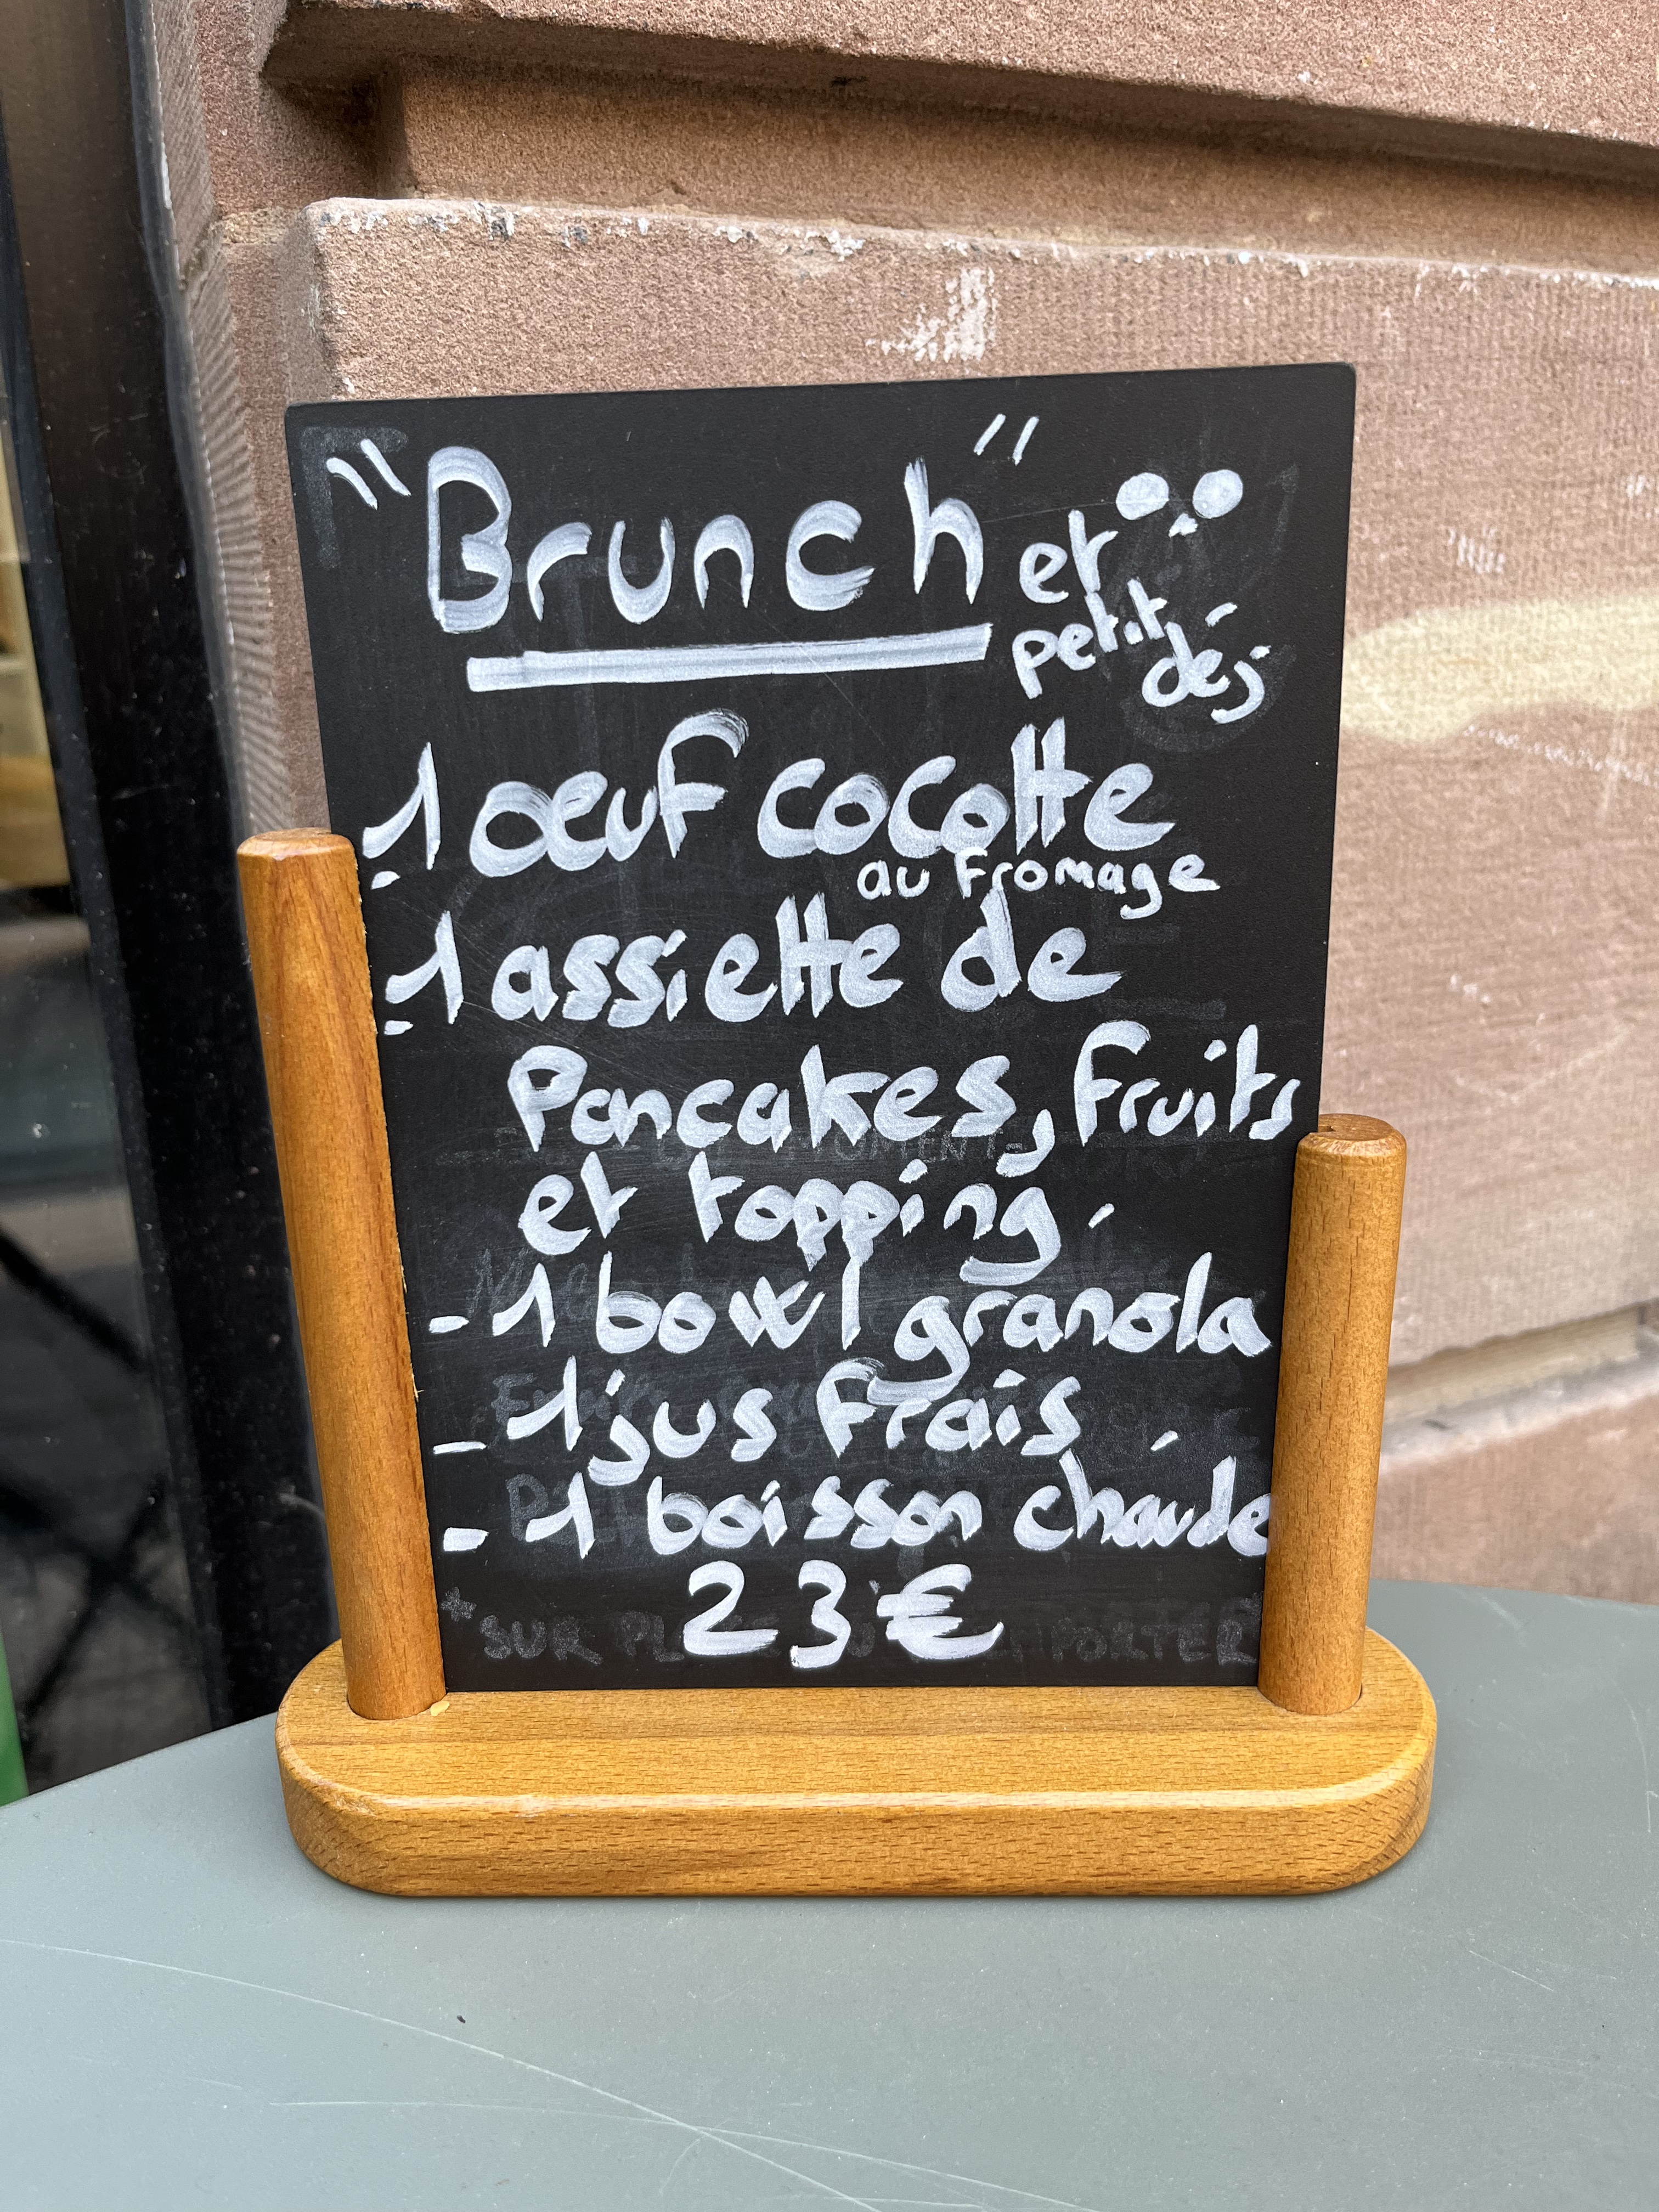 "Brunch" et
petit déj
- 1 œuf cocotte
au fromage
- 1 assiette de
Pancakes, fruits
et topping.
- 1 bowl granola
- 1 jus frais
- 1 boisson chaude
23€
SUR PORTER